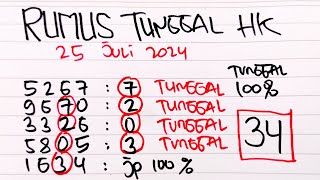 RUMUS TUNGGAL HK
25 Juli 2024
TUNGGAL
100%
5267 : 7 TUNGGAL
9670 : 2 TUNGGAL
3326 : 0 TUNGGAL
5805 : 3 TUNGGAL
1634 : Jp 100%
34